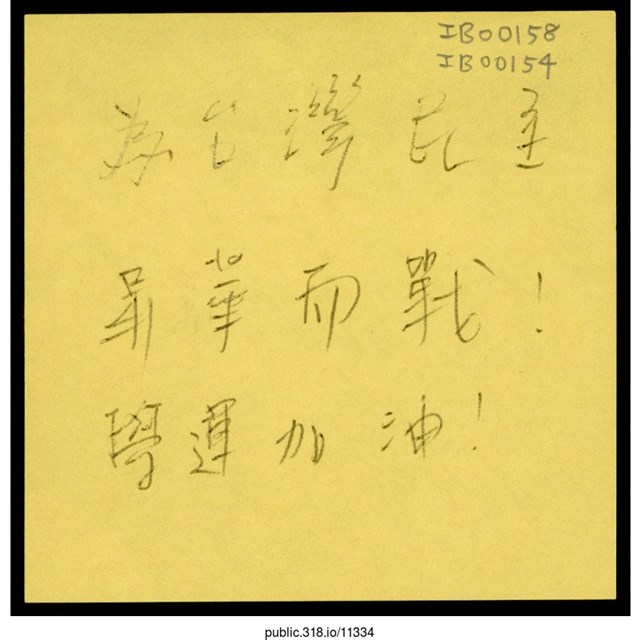 IB00158
IB00154
為台灣民主
昇華而戰!
學運加油!
public.318.io/11334